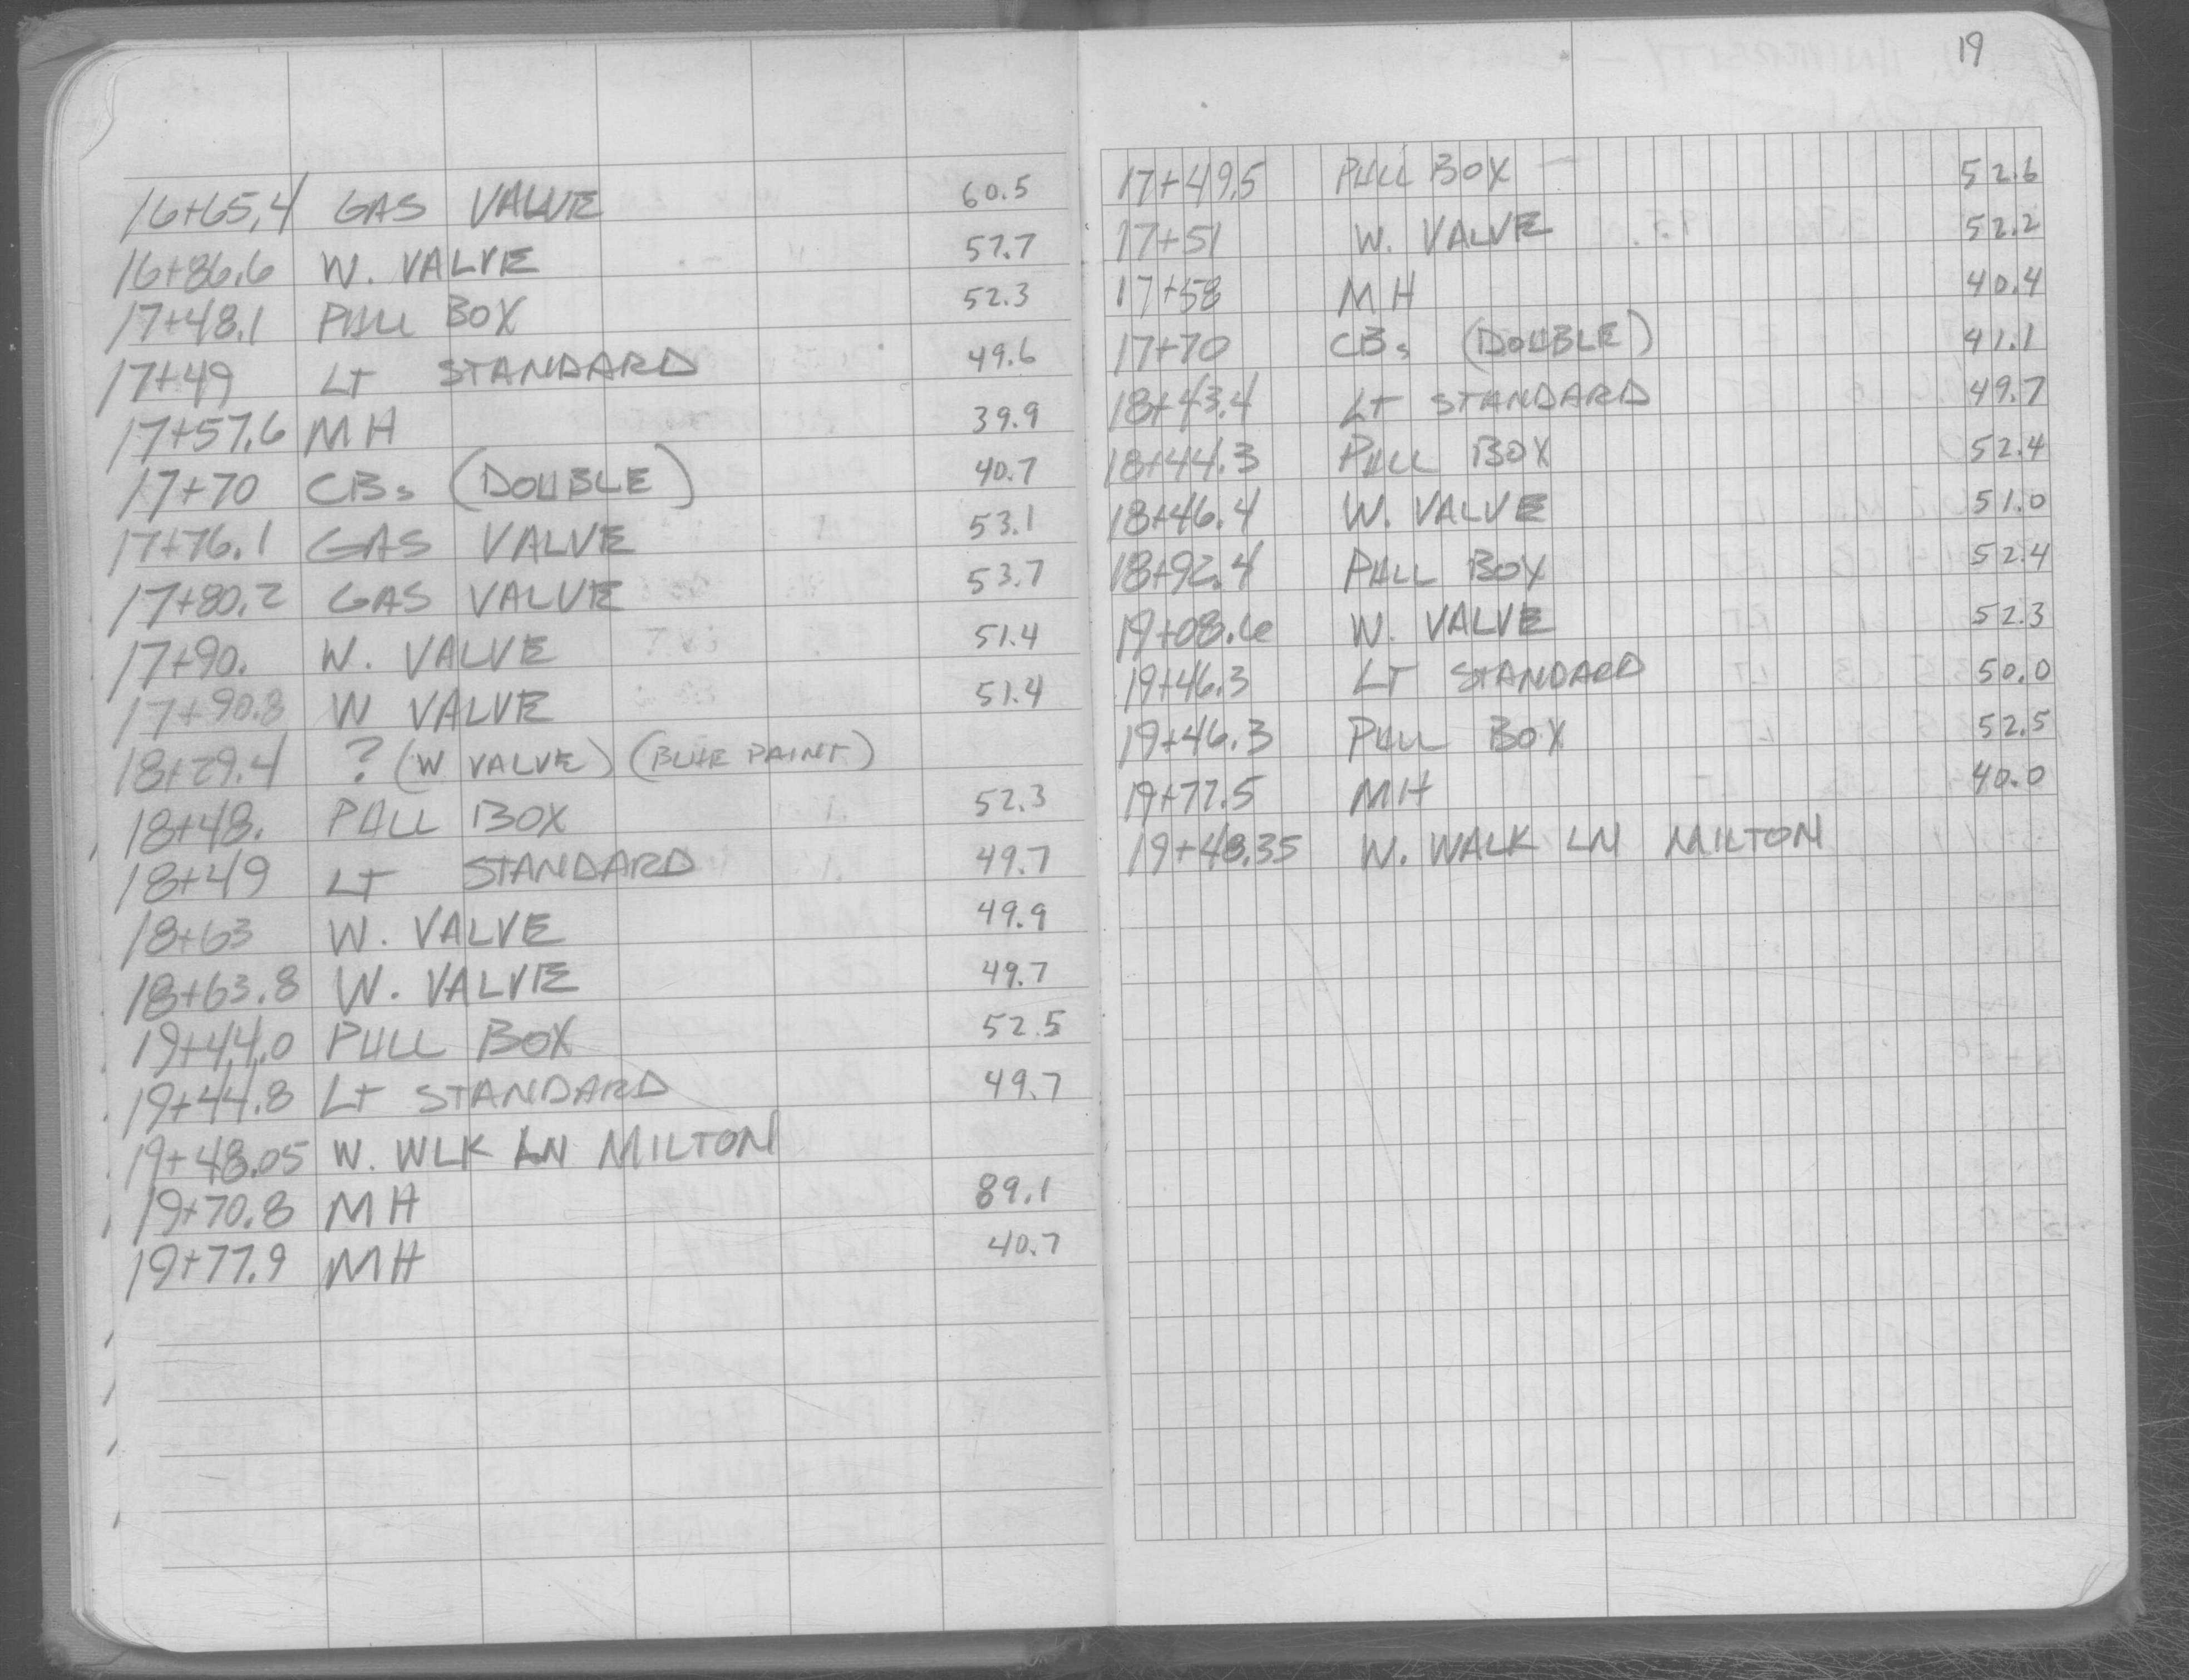 16+65.4 GAS VALVE 60.5
16+86.6 W. VALVE 57.7
17+48.1 PULL BOX 52.3
17+49 LT STANDARD 49.6
17+57.6 MH 39.9
17+70 CBs (DOUBLE) 40.7
17+76.1 GAS VALVE 53.1
17+80.2 GAS VALVE 53.7
17+90. W. VALVE 51.4
17+90.8 W VALVE 51.4
18+29.4 ? (W VALVE) (BLUE PAINT)
18+48. PULL BOX 52.3
18+49 LT STANDARD 49.7
18+63 W. VALVE 49.9
18+63.8 W. VALVE 49.7
19+44.0 PULL BOX 52.5
19+44.8 LT STANDARD 49.7
19+48.05 W. WLK LN MILTON
19+70.8 MH 89.1
19+77.9 MH 40.7
19
17+49.5 PULL BOX 52.6
17+51 W. VALVE 52.2
17+58 MH 40.4
17+70 CBs (DOUBLE) 41.1
18+43.4 LT STANDARD 49.7
18+44.3 PULL BOX 52.4
18+46.4 W. VALVE 51.0
18+92.4 PULL BOX 52.4
19+08.6 W. VALVE 52.3
19+46.3 LT STANDARD 50.0
19+46.3 PULL BOX 52.5
19+77.5 MH 40.0
19+48.35 W. WALK LN MILTON